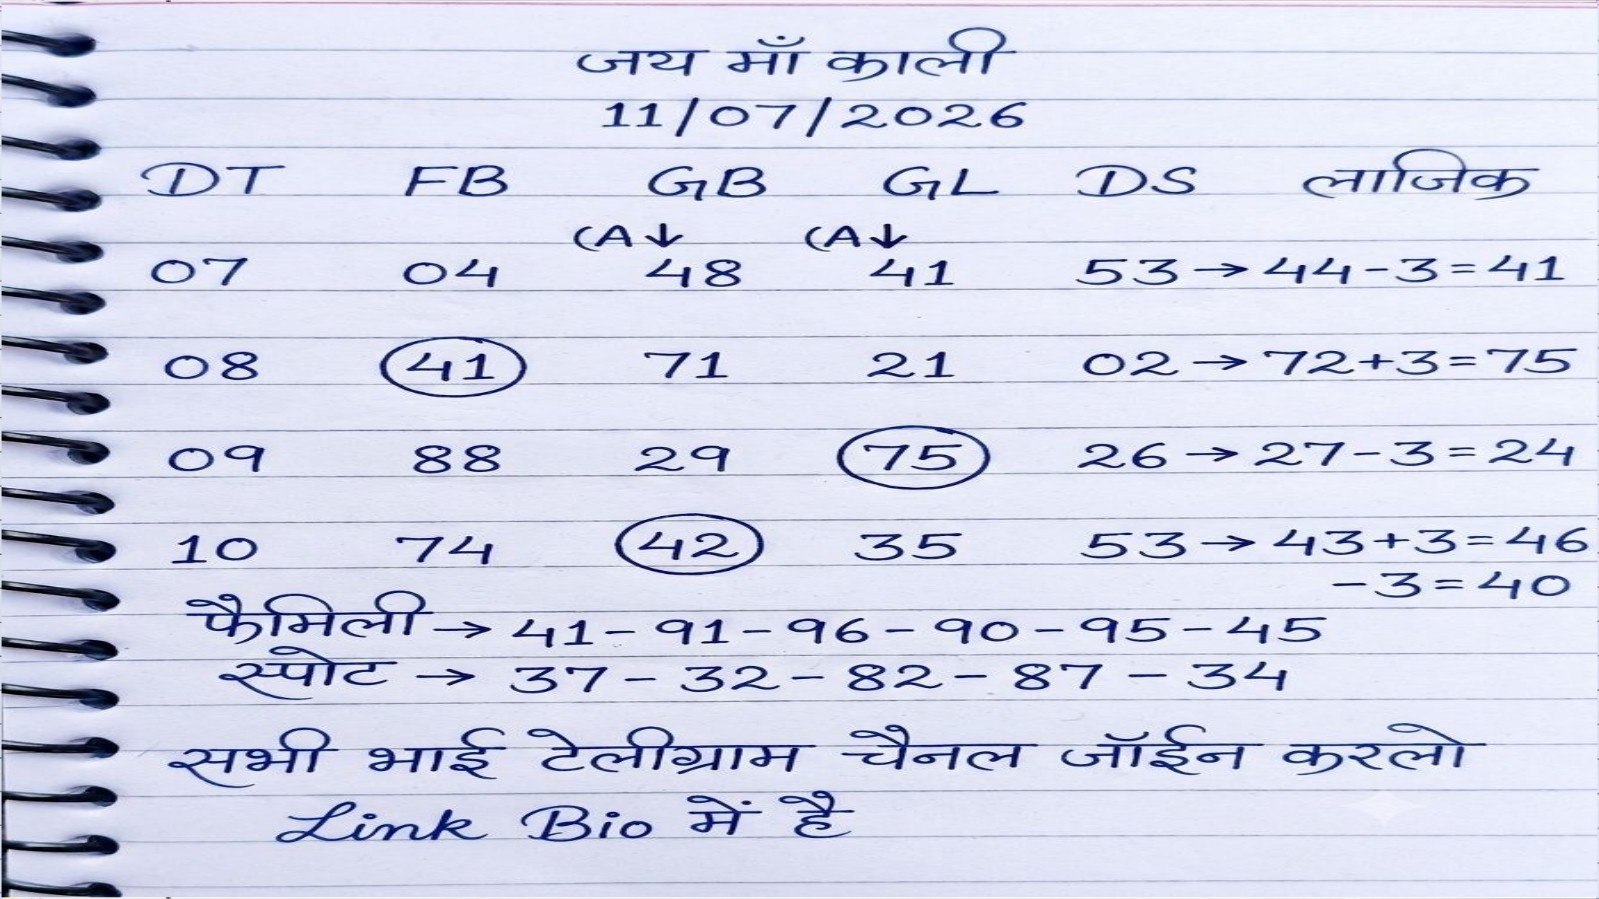 जय माँ काली
11/07/2026
DT FB GB GL DS लाजिक
(A↓ (A↓
07 04 48 41 53→44-3=41
08 41 71 21 02→72+3=75
09 88 29 75 26→27-3=24
10 74 42 35 53→43+3=46
-3=40
फैमिली→41-91-96-90-95-45
स्पोट→37-32-82-87-34
सभी भाई टेलीग्राम चैनल जॉईन करलो
Link Bio में है